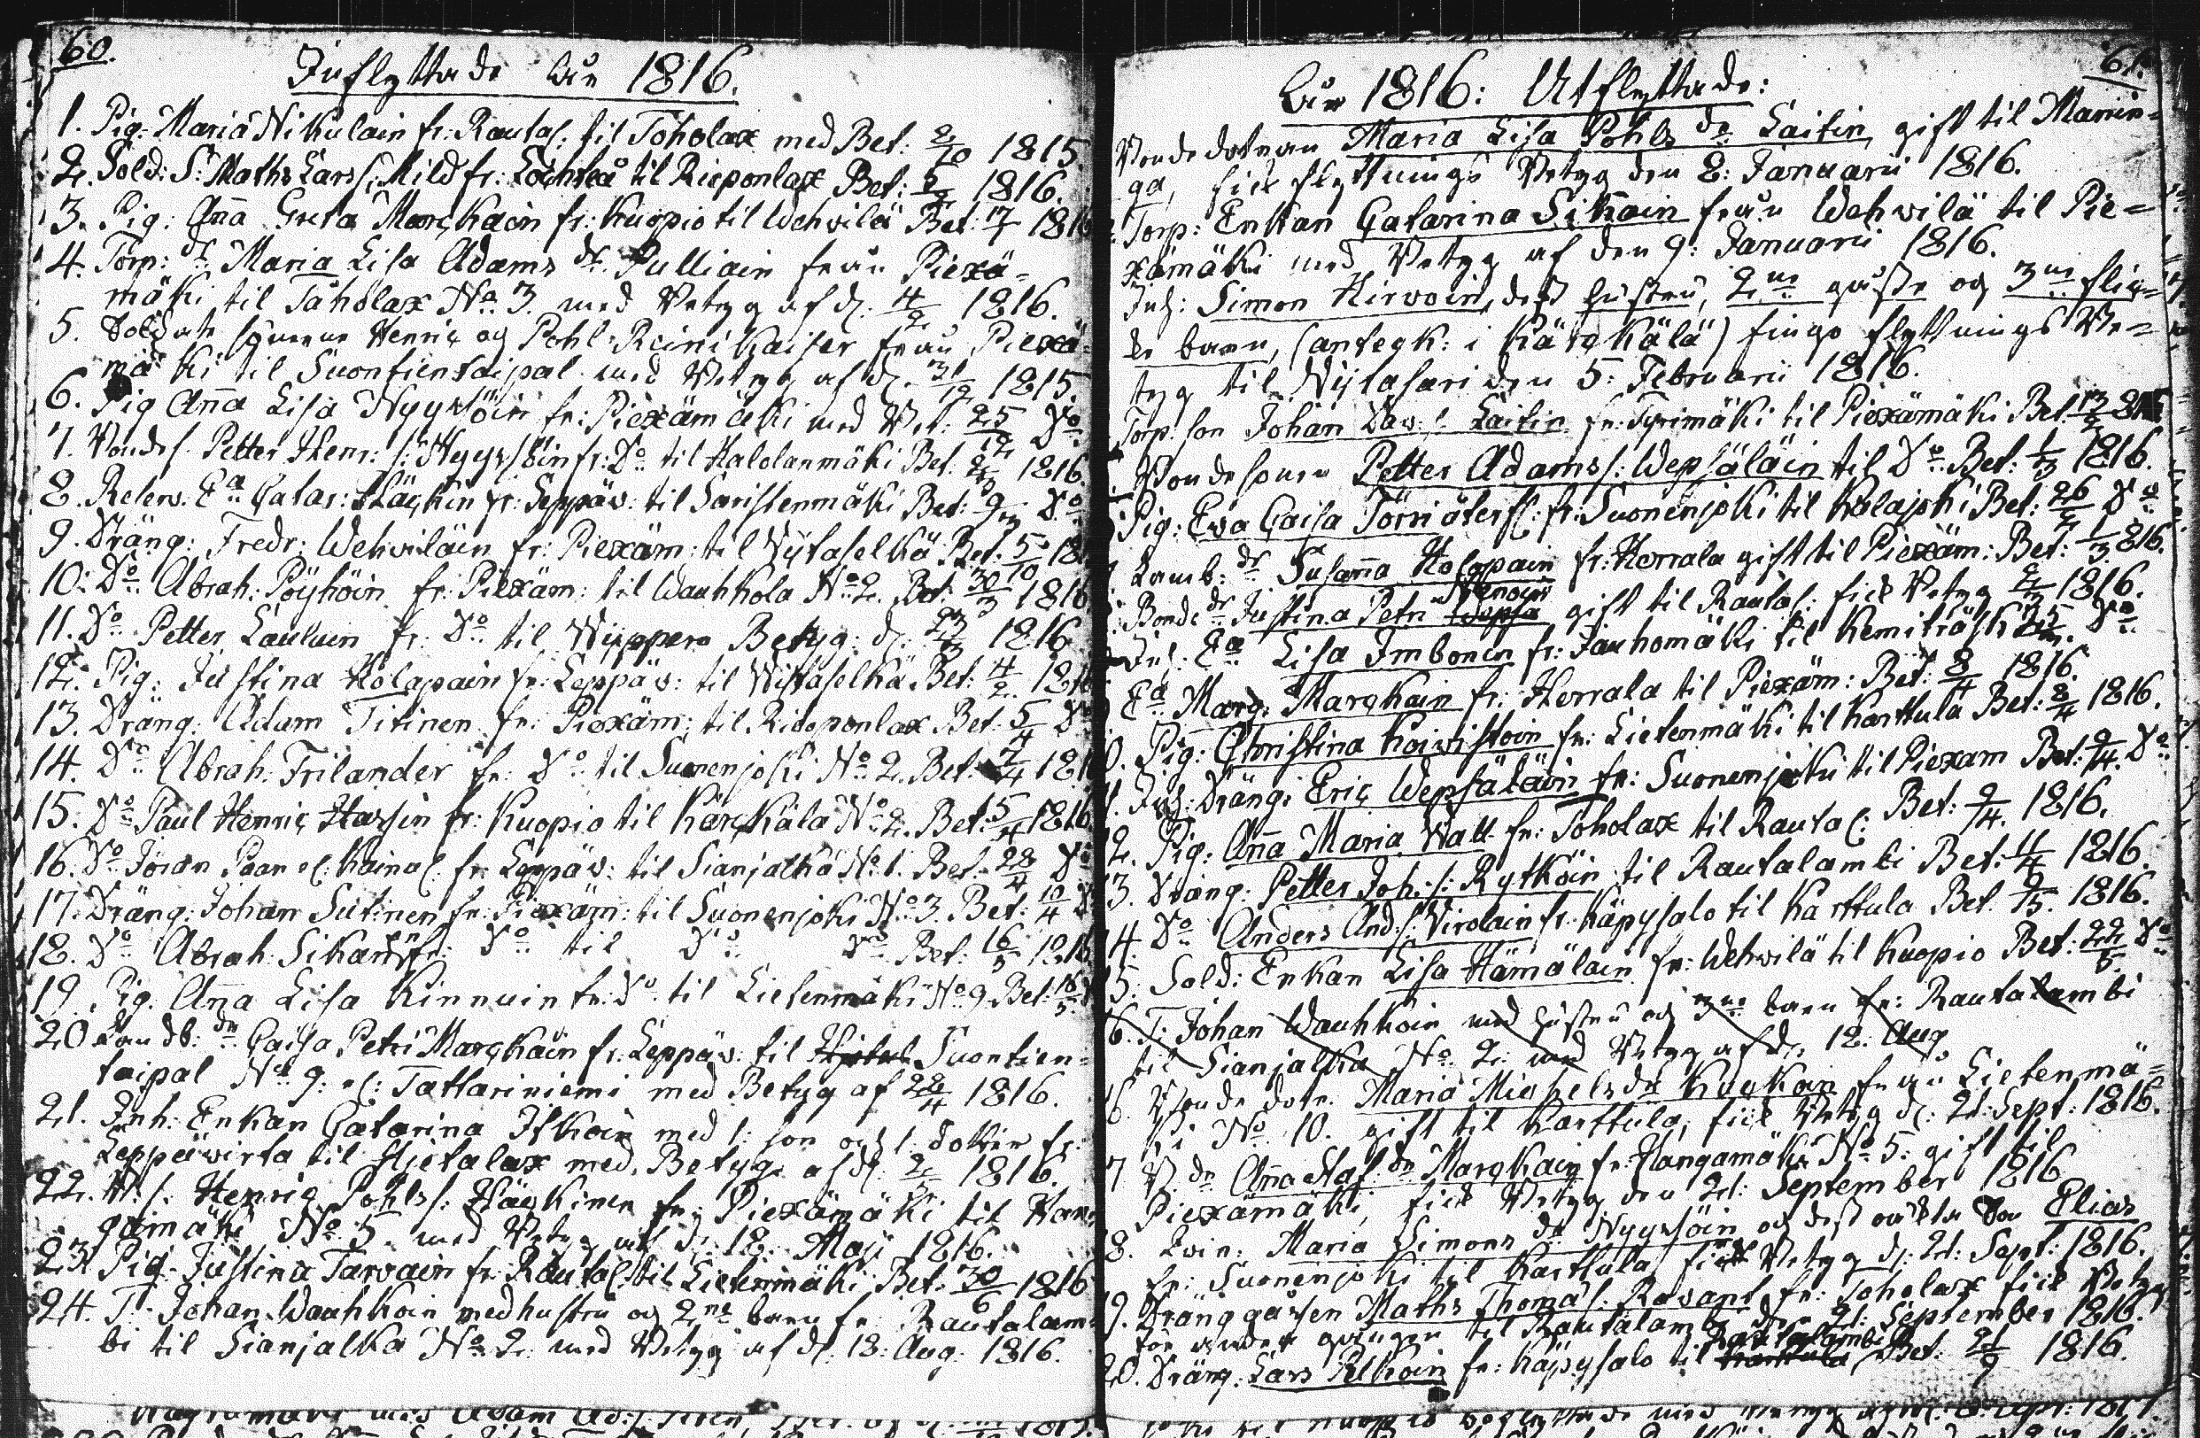 60.
Inflyttade År 1816.
1. Pig: Maria Nikulain fr: Rautal: til Toholax med Bet: 2/10 1815.
2. Sold: S: Maths Lars s: Mild fr: Lochteå til Rieponlax Bet: 1816.
3. Pig: Ana Greta Marckain fr: Kuopio til Wehvilä Bet: 17/1 181
4. Torp: dr Maria Lisa Adams dr Pulliain från Piexä=
mäki til Taholax No 3 med Betyg af d: 4/2 1816.
5. Soldats sönerne Henric og Pohl Reinikaiser från Piexä=
mäki til Suontiensaipal med Betyg af d. 31/12 1815.
6. Pig Ana Lisa Nyyssöin fr: Piexämäki med Bet: 25/12 Do
7. Bondes: Petter Henr: s: Nyyssöin fr: Do til Halolanmäki Bet: 1816
8. Reserv. Ea Catar: Häckin fr: Leppäv: til Saristenmäki Bet: Do
9. Dräng: Fredr: Wehviläin fr: Piexäm: til Nytaselkä Bet. 5/10 181
10: Do Abrah: Pöyhöin fr: Piexäm: til Wauhkola No 2. Bet: 30/3 1816
11. Do Petter Lauluen fr: Do til Wuppero Betyg: d: 23/3 1816
12. Pig: Justina Holapain fr: Leppäv: til Nytaselkä Bet: 4/2 181
13. Dräng: Adam Titinen fr: Piexäm: til Rieponlax Bet. 5/4 Do
14. Do Abrah: Frilander fr: Do til Suonenjoki No 2. Bet: 7/4 181
15. Do Paul Henric Hassin fr: Kuopio til Kärckälä No 2. Bet: 5/4 1816
16. Do Jöran Paan el: Kainal: fr: Leppäv: til Sianjalka No 1. Bet. 28/4 Do
17. Dräng: Johan Sutinen fr: Piexäm: til Suonenjoki No 3. Bet: 10/4 D
18. Do Abrah: Sikan fr: Do til Do Do Bet: 16/5 1816
19. Pig: Ana Lisa Kinnuin fr: Do til Lietenmäki No 9 Bet: 16/5
20 Landb: dr Caisa Petri Marckain fr: Leppäv: til Suontien=
taipal No 9: el: Tattariniemi med Betyg af 22/4 1816.
21. Inh: Enkan Catarina Itkoin med 1: son och 1: dotter fr:
Leppävirta til Hjetalax med Betyg af d: 2/5 1816.
22. B: s: Henric Pohls s: Häckinen fr: Piexämäki til Han=
gamäki No 5. med Betyg af d: 18: Maji 1816.
23. Pig: Justina Tarvain fr: Rautal: til Lietenmäki Bet: 30/6 1816
24. T: Johan Wauhkoin med hustru og 2ne barn fr: Rautalam=
bi til Sianjalka No 2: med Betyg af d: 13: Aug: 1816.
61.
År 1816: Utflyttade:
Bonde dotran Maria Lisa Pohls dr Laitin gift til Manin=
ga, fick flyttnings Betyg den 8: Januarii 1816.
Torp: Enkan Catarina Sikain från Wehvilä til Pie=
xämäki med Betyg af den 9: Januarii 1816.
Inh: Simon Hirvoin, dess hustru, 2ne gosse og 3ne flic=
ke barn, (antegk: i Kärckälä) fingo flyttnings Be=
tyg til Nytasari den 5: Februarii 1816.
Torp: son Johan Dav: s: Laitin fr: Syrimäki til Piexämäki Bet: 1816
Bondesonen Petter Adams s: Wepsäläin til Do Bet: 1/3 1816.
Pig: Eva Caisa Törn fr: Suonenjoki til Kalajoki Bet: 26/2 Do
Lamb: dr Susana Holopain fr: Herrala gift til Piexäm: Bet: 1/3 816.
Bonde dr Justina Petri Nenoin gift til Rautal: fick Betyg 1816.
Inh: Ea Lisa Imbonen fr: Jauhomäki til Kemiträsk Do
Ea Marg: Marckain fr: Herrala til Piexäm: Bet: 8/4 1816.
0. Pig: Christina Koivistoin fr: Lietenmäki til Karttula Bet: 8/4 1816.
1. Inh: Dräng: Eric Wepsäläin fr: Suonenjoki til Piexäm Bet: 9/4. Do
2. Pig: Ana Maria Wall fr: Toholax til Rautal: Bet: 9/4. 1816.
3. Dräng: Petter Joh: s: Rytköin til Rautalambi Bet: 11/4 1816.
4. Do Anders And: s: Virolain fr: Käpysalo til Karttula Bet. 9/5. 1816.
5. Sold: Enkan Lisa Hämäläin fr: Wehvilä til Kuopio Bet: 22/5. Do
6. T: Johan Wauhkoin med hustru og 3ne barn fr: Rautalambi
til Sianjalka No 2: med Betyg af d: 12: Aug
6. Bonde dotr: Maria Michels dr Kockan från Lietenmä=
ki No 10. gift til Karttula, fick Betyg d: 21: Sept: 1816.
7 B dr Ana Staf: dr Marckain fr: Hangamäki No 5: gift til
Piexämäki, fick Betyg den 21: September 1816
8. Qvin: Maria Simons dr Nyyssöin og dess oäkta Son Elias
fr: Suonenjoki til Karttula fick Betyg d: 21: Sept: 1816.
9. Dränggåssen Maths Thomas s: Rosant fr: Toholax fick Betyg
för andra gången til Rautalambi d: 21: September 1816.
20. Dräng: Lars Pelkoin fr: Käpysalo til Rautalambi Bet: 21/9 1816.